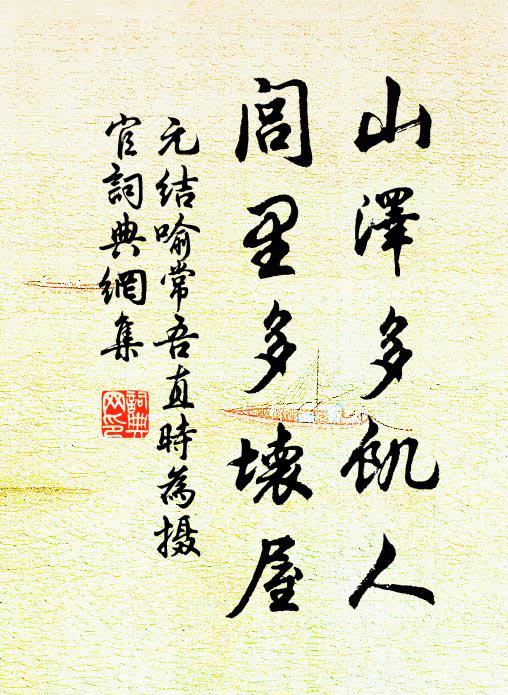 山澤多飢人
閭里多壞屋
元結喻常吾直時為摄
官詞典網集
詞典
网印